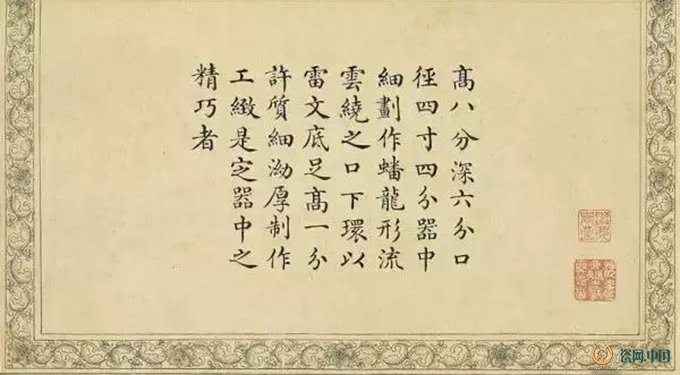 高八分深六分口
徑四寸四分器中
細劃作蟠龍形流
雲繞之口下環以
雷文底足高一分
許質細泑厚制作
工緻是定器中之
精巧者
瓷网.中国